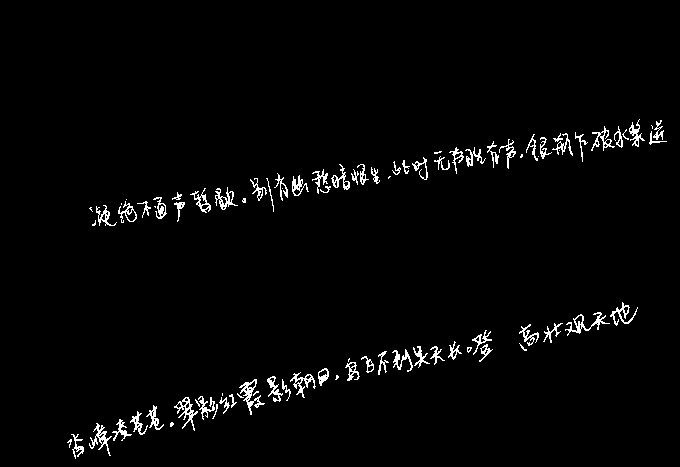 凝绝不通声暂歇。别有幽愁暗恨生,此时无声胜有声。银瓶乍破水浆迸
杳嶂凌苍苍。翠影红霞影朝日,鸟飞不到吴天长。登 高壮观天地